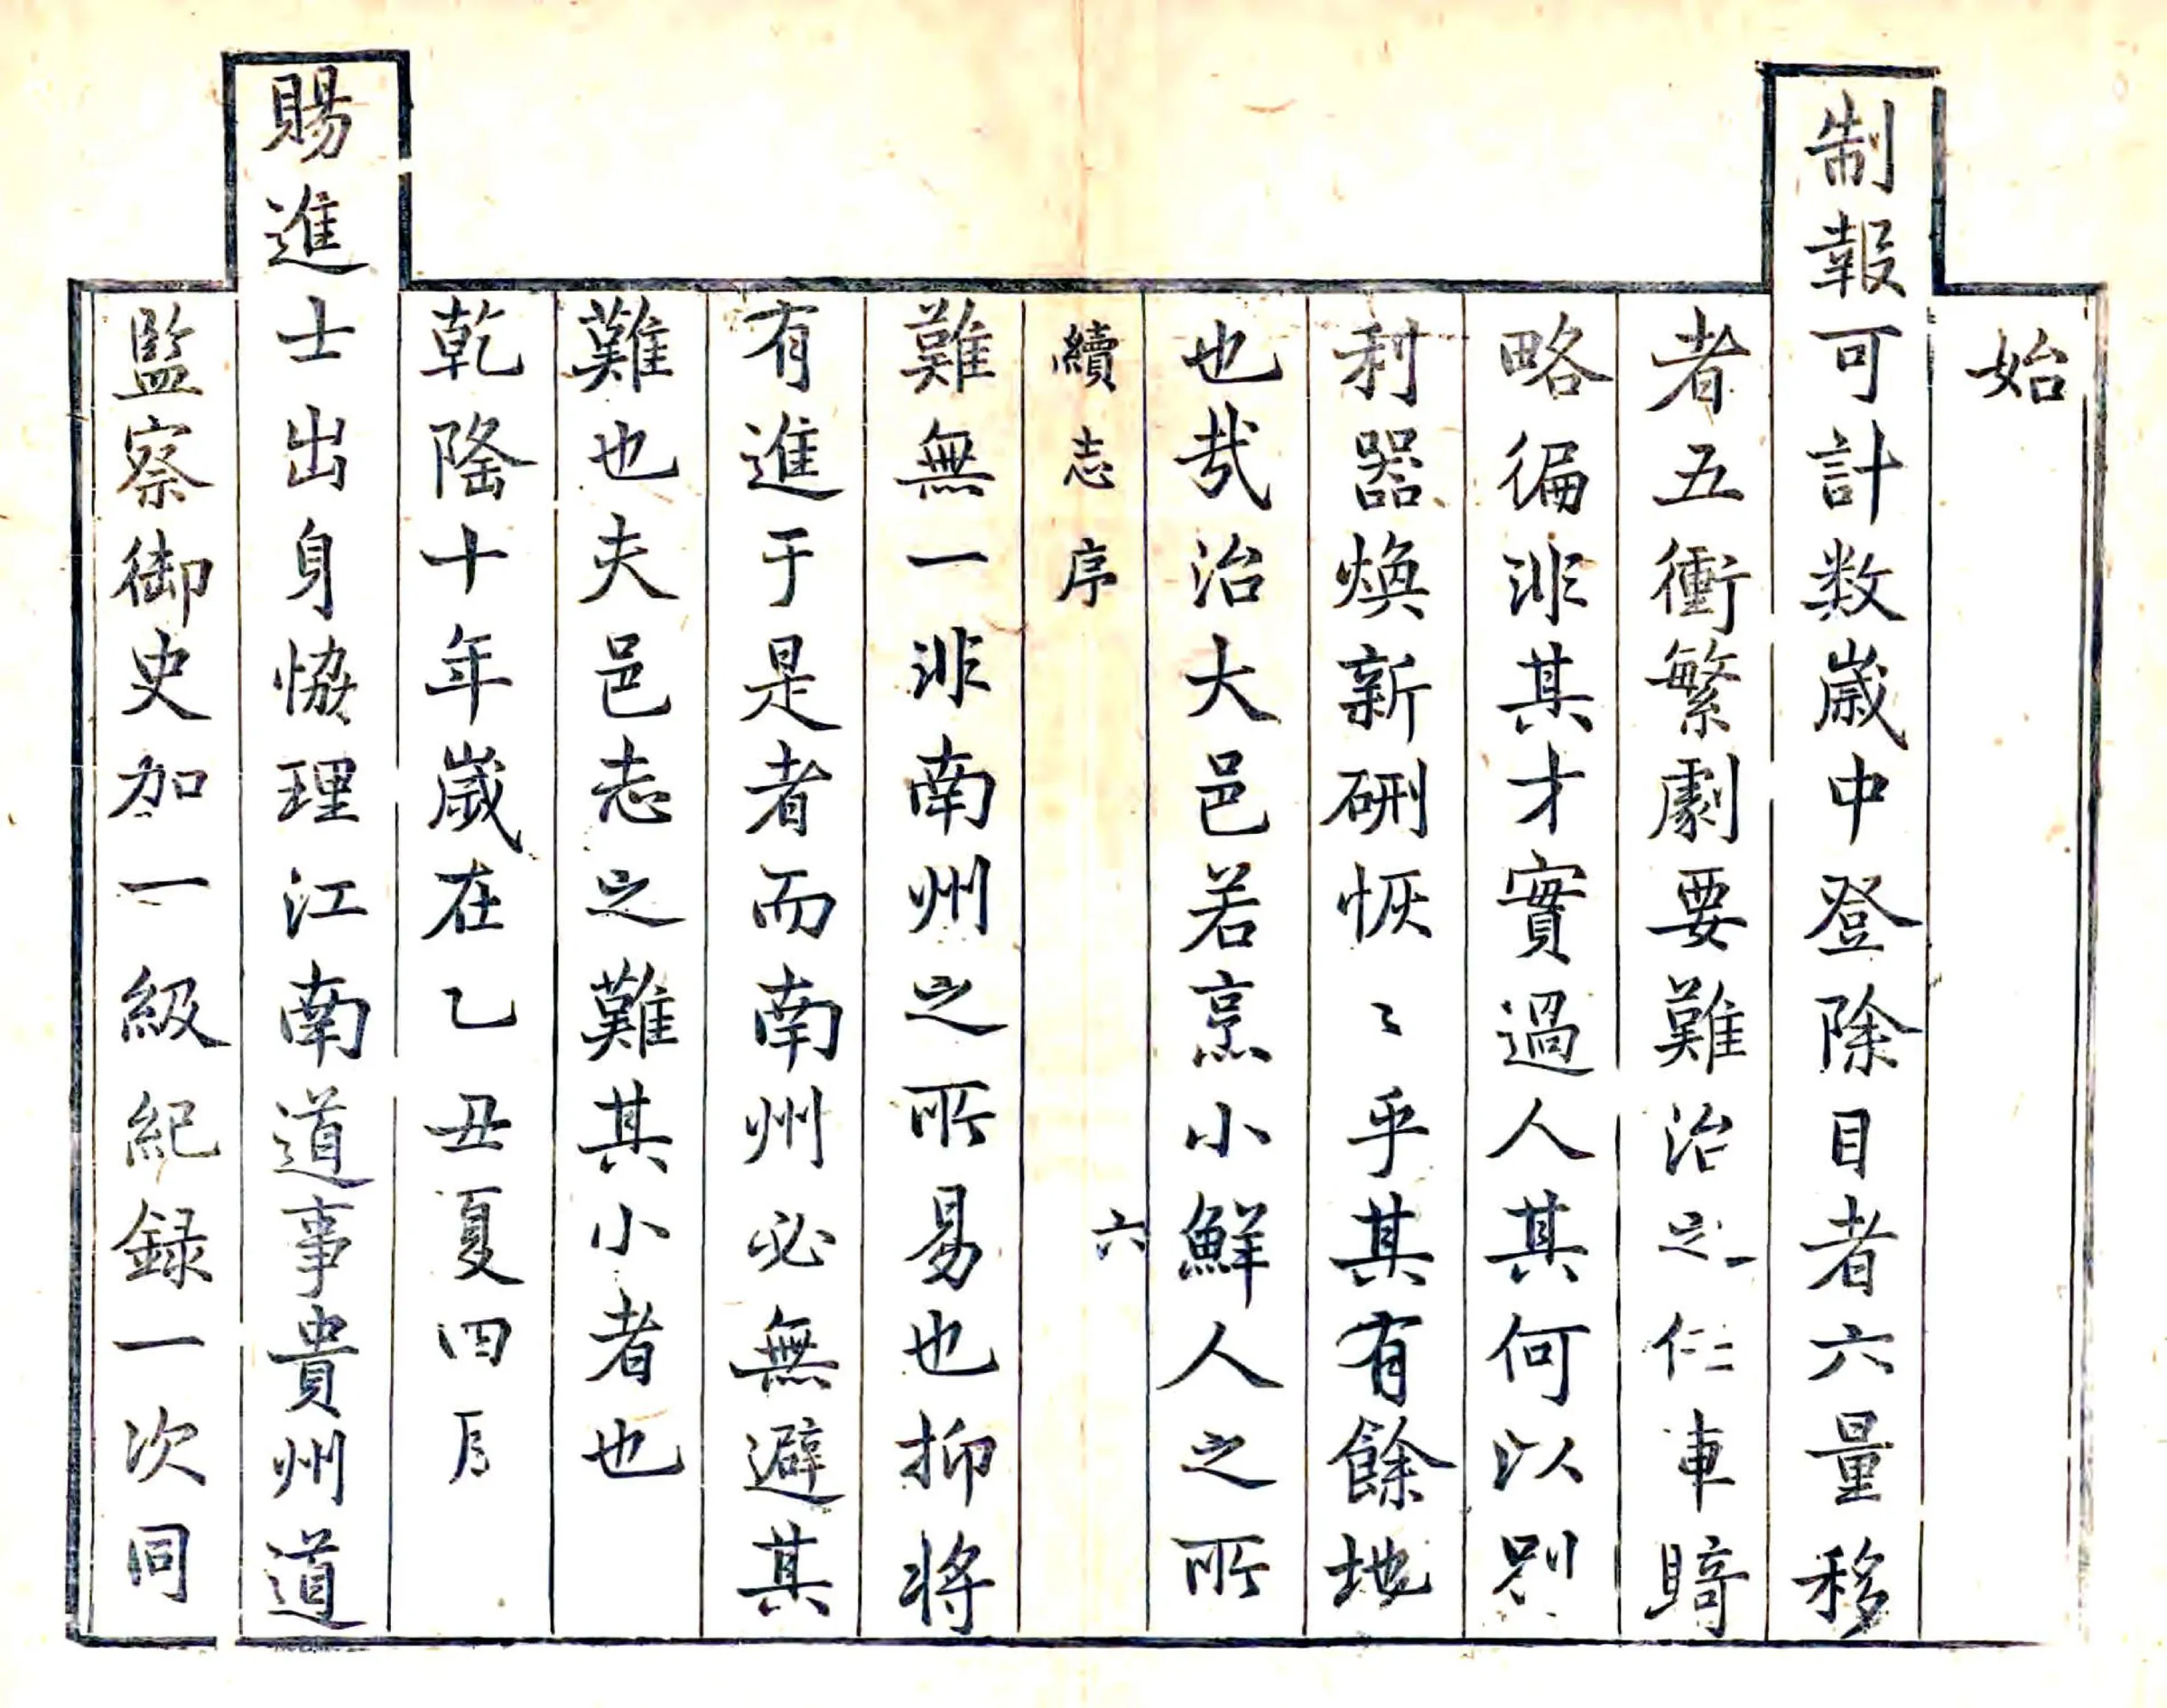 始
制報可計数歳中登除目者六量移
者五衝繁劇要難治之一仁二車騎
略徧非其才實過人其何以別
利器煥新硎恢〻乎其有餘地
也㢤治大邑若烹小鮮人之所
續志序 六
難無一非南州之所易也抑将
有進于是者而南州必無避其
難也夫邑志之難其小者也
乾隆十年歳在乙丑夏四月
賜進士出身恊理江南道事貴州道
監察御史加一級紀録一次同